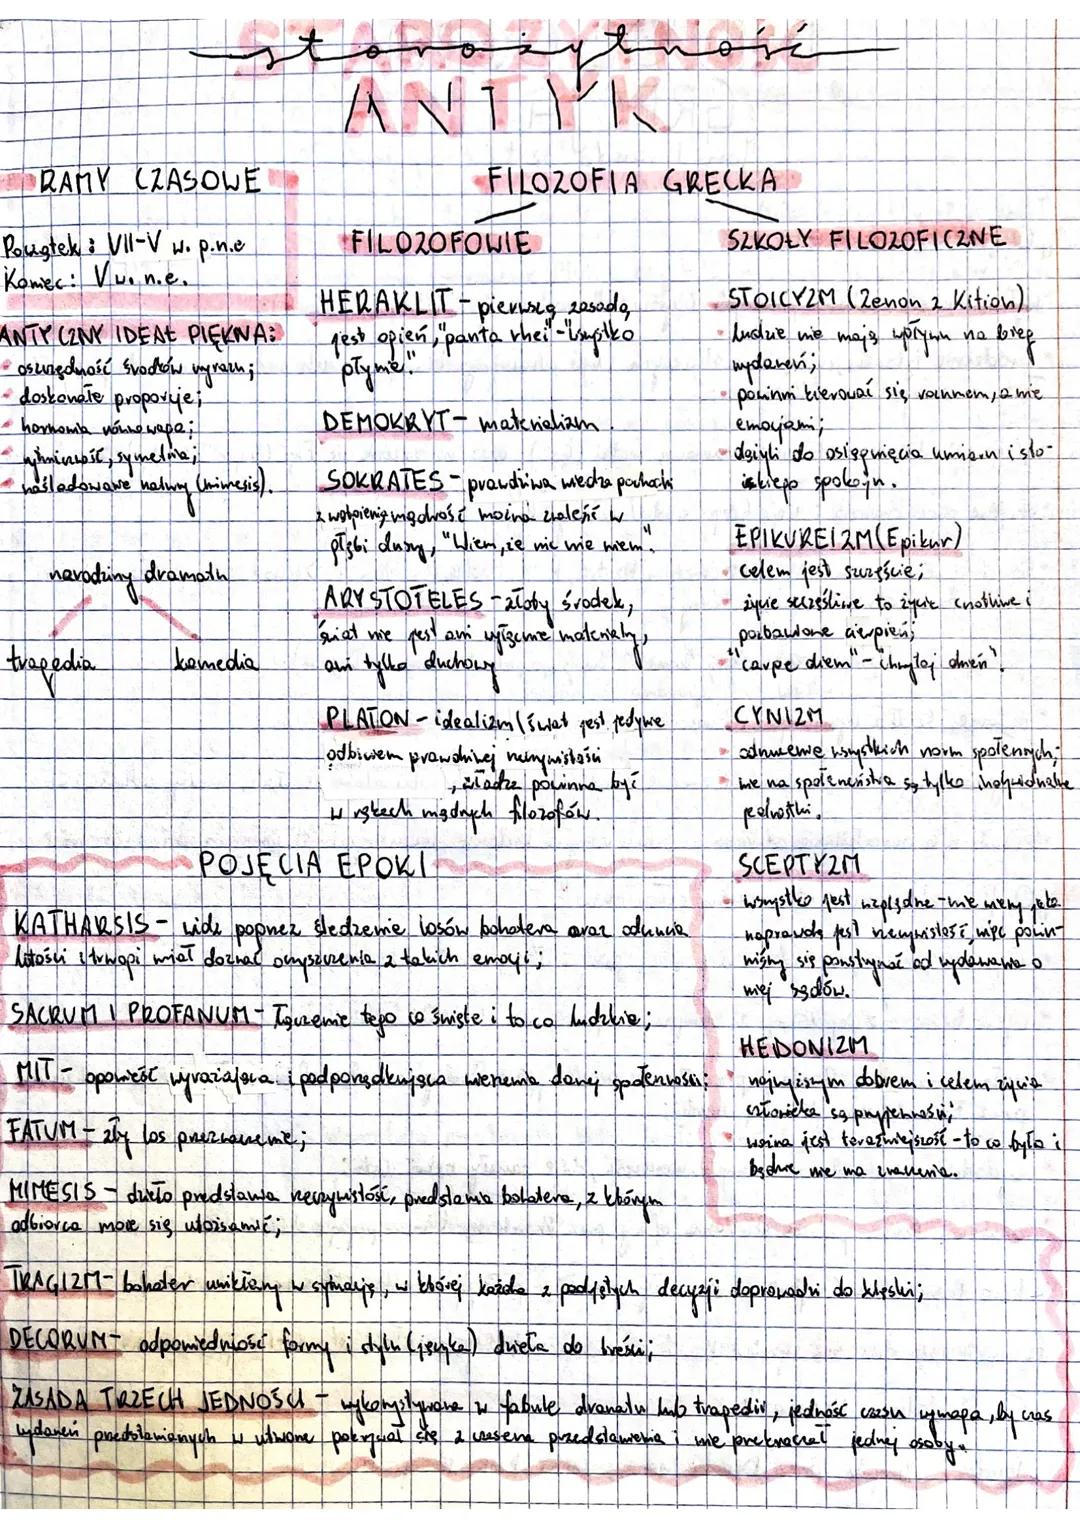 starożytność
ANTYK
RAMY CZASOWE
Początek: VII-V w. p.n.e
Koniec: V w. n.e.
ANTYCZNY IDEAŁ PIĘKNA:
• oszczędność środków wyrazu;
• doskonałe proporcje;
• harmonia równowaga;
• rytmiczność, symetria;
• naśladowanie natury (mimesis).
narodziny dramatu
tragedia komedia
FILOZOFIA GRECKA
FILOZOFOWIE
HERAKLIT - pierwszą zasadą
jest ogień, "panta rhei" - "wszystko
płynie."
DEMOKRYT - materializm.
SOKRATES - prawdziwa wiedza pochodzi
z wątpienia mądrość można znaleźć w
głębi duszy, "Wiem, że nic nie wiem".
ARYSTOTELES - złoty środek,
świat nie jest ani wyłącznie materialny,
ani tylko duchowy
PLATON - idealizm (świat jest jedynie
odbiciem prawdziwej rzeczywistości
, władza powinna być
w rękach mądrych filozofów.
SZKOŁY FILOZOFICZNE
STOICYZM (Zenon z Kition)
• ludzie nie mają wpływu na bieg
wydarzeń;
• powinni kierować się rozumem, a nie
emocjami;
• dążyli do osiągnięcia umiaru i sto-
ickiego spokoju.
EPIKUREIZM (Epikur)
• celem jest szczęście;
• życie szczęśliwe to życie cnotliwe i
pozbawione cierpień;
• "carpe diem" - "chwytaj dzień".
CYNIZM
• odrzucenie wszystkich norm społecznych;
• nie ma społeczeństwa są tylko indywidualne
jednostki.
SCEPTYZM
• wszystko jest względne - nie wiemy jaka
naprawdę jest rzeczywistość, więc powin-
niśmy się powstrzymać od wydawania o
niej sądów.
HEDONIZM
• najwyższym dobrem i celem życia
człowieka są przyjemności;
• ważna jest teraźniejszość - to co było i
będzie nie ma znaczenia.
POJĘCIA EPOKI
KATHARSIS - widz poprzez śledzenie losów bohatera oraz odczucia
litości i trwogi miał doznać oczyszczenia z takich emocji;
SACRUM I PROFANUM - łączenie tego co święte i to co ludzkie;
MIT - opowieść wyrażająca i podporządkująca wierzenia danej społeczności;
FATUM - zły los przeznaczenie;
MIMESIS - dzieło przedstawia rzeczywistość, przedstawia bohatera, z którym
odbiorca może się utożsamić;
TRAGIZM - bohater uwikłany w sytuację, w której każda z podjętych decyzji doprowadzi do klęski;
DECORUM - odpowiedniość formy i stylu (języka) dzieła do treści;
ZASADA TRZECH JEDNOŚCI - wykorzystywana w fabule dramatu lub tragedii, jedność czasu wymaga, by czas
wydarzeń przedstawianych w utworze pokrywał się z czasem przedstawienia i nie przekraczał jednej osoby.